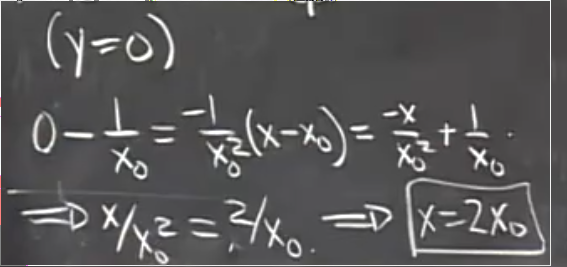 (y=0)
0 - 1/x₀ = -1/x₀² (x-x₀) = -x/x₀² + 1/x₀.
⇒ x/x₀² = 2/x₀. ⇒ x=2x₀